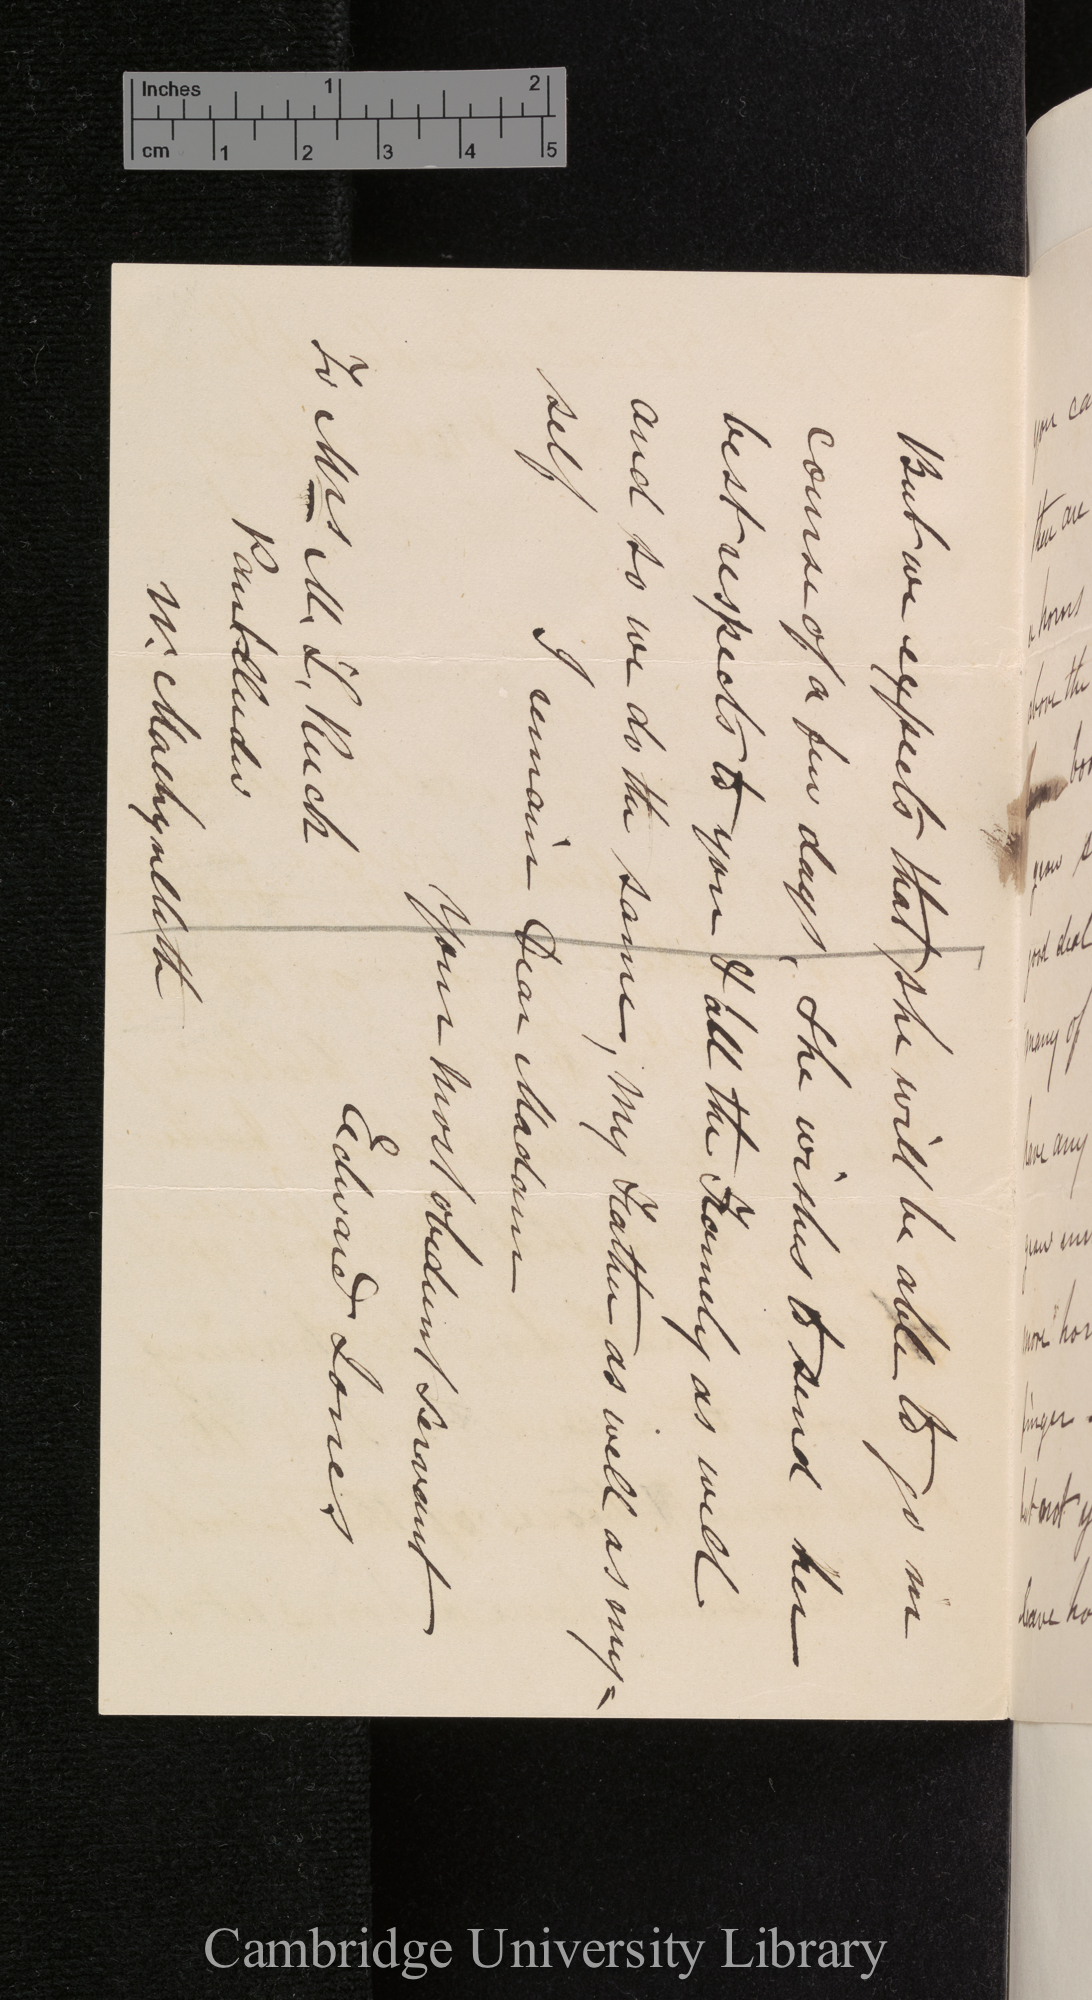 But we expects that she will be able to go in
course of a few days, she wishes to send her
best respects to you & all the Family as well
and so we do the same, My Father as well as my=
self
I remain Dear Madam
Your most obedient Servant
Edward Jones
To Mrs M. L. Ruck
Pantlludw
N. Machynlleth
you ca
then are
horns
above the
grow s
good deal
many of
have any
grow
more "hor
finger
but not y
leave ho
Inches 1 2
cm 1 2 3 4 5
Cambridge University Library